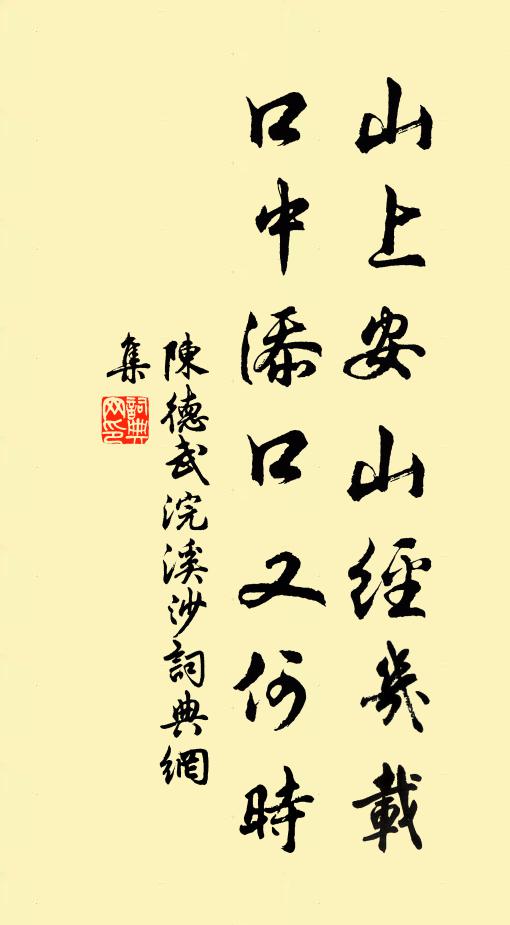 山上安山經幾載
口中添口又何時
陳德武浣溪沙詞典網
集
詞典網印